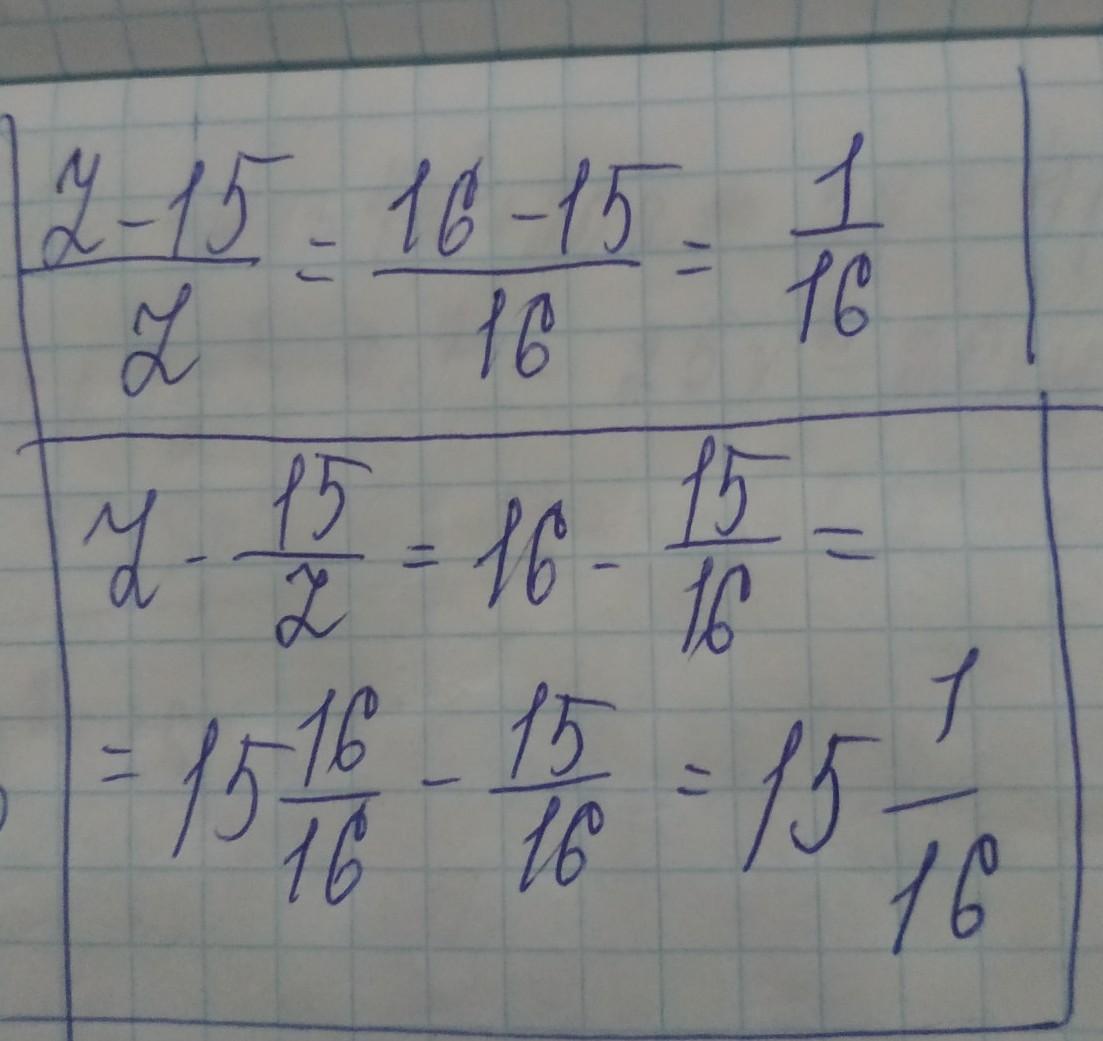 (z-15)/z = (16-15)/16 = 1/16
z - 15/z = 16 - 15/16 =
= 15 16/16 - 15/16 = 15 1/16